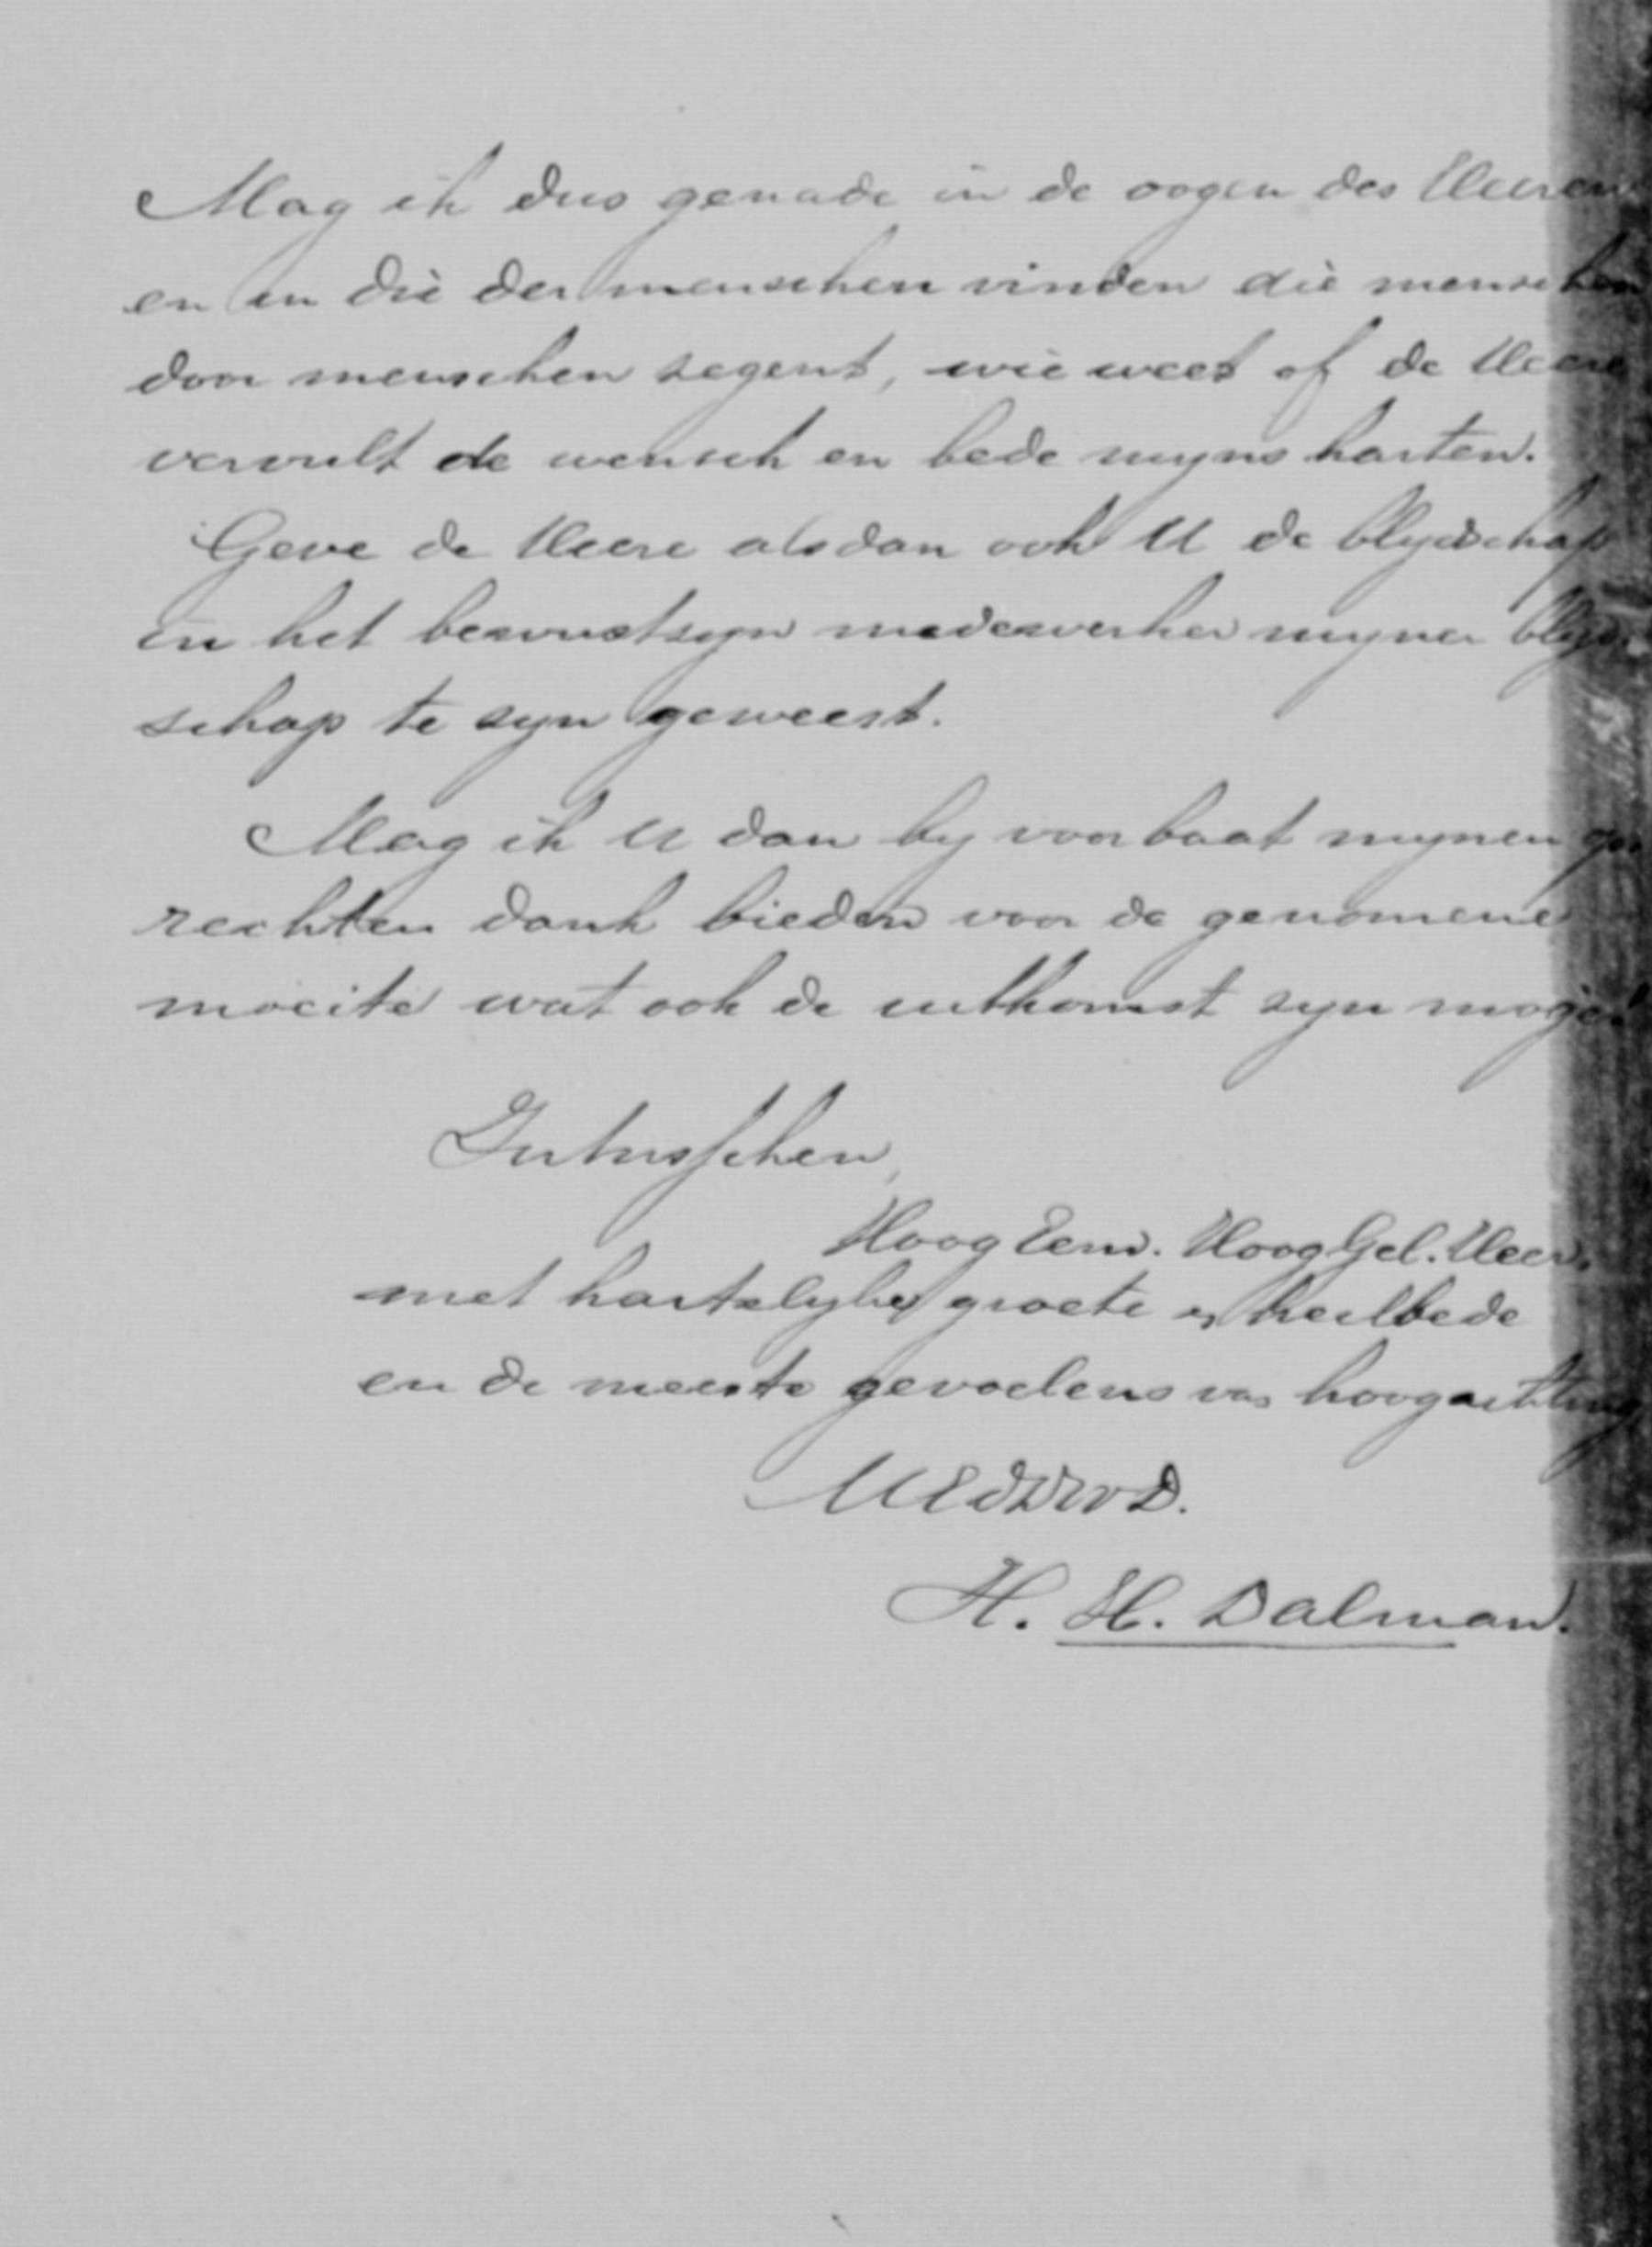 Mag ik dus genade in de oogen des Heeren
en in die der menschen vinden die menschen
door menschen zegent, wie weet of de Heere
vervult de wensch en bede myns harten.
Geve de Heere alsdan ook U de blydschap
in het bewustzyn medewerker myner blyd-
schap te zyn geweest.
Mag ik U dan by voorbaat mynen
rechten dank bieden voor de genomene
moeite wat ook de uitkomst zyn moge!
Intusschen,
Hoog Eerw. Hoog Gel. Heer,
met hartelyke groete en heilbede
en de meeste gevoelens van hoogachting
UEdDwD.
H. H. Dalman.